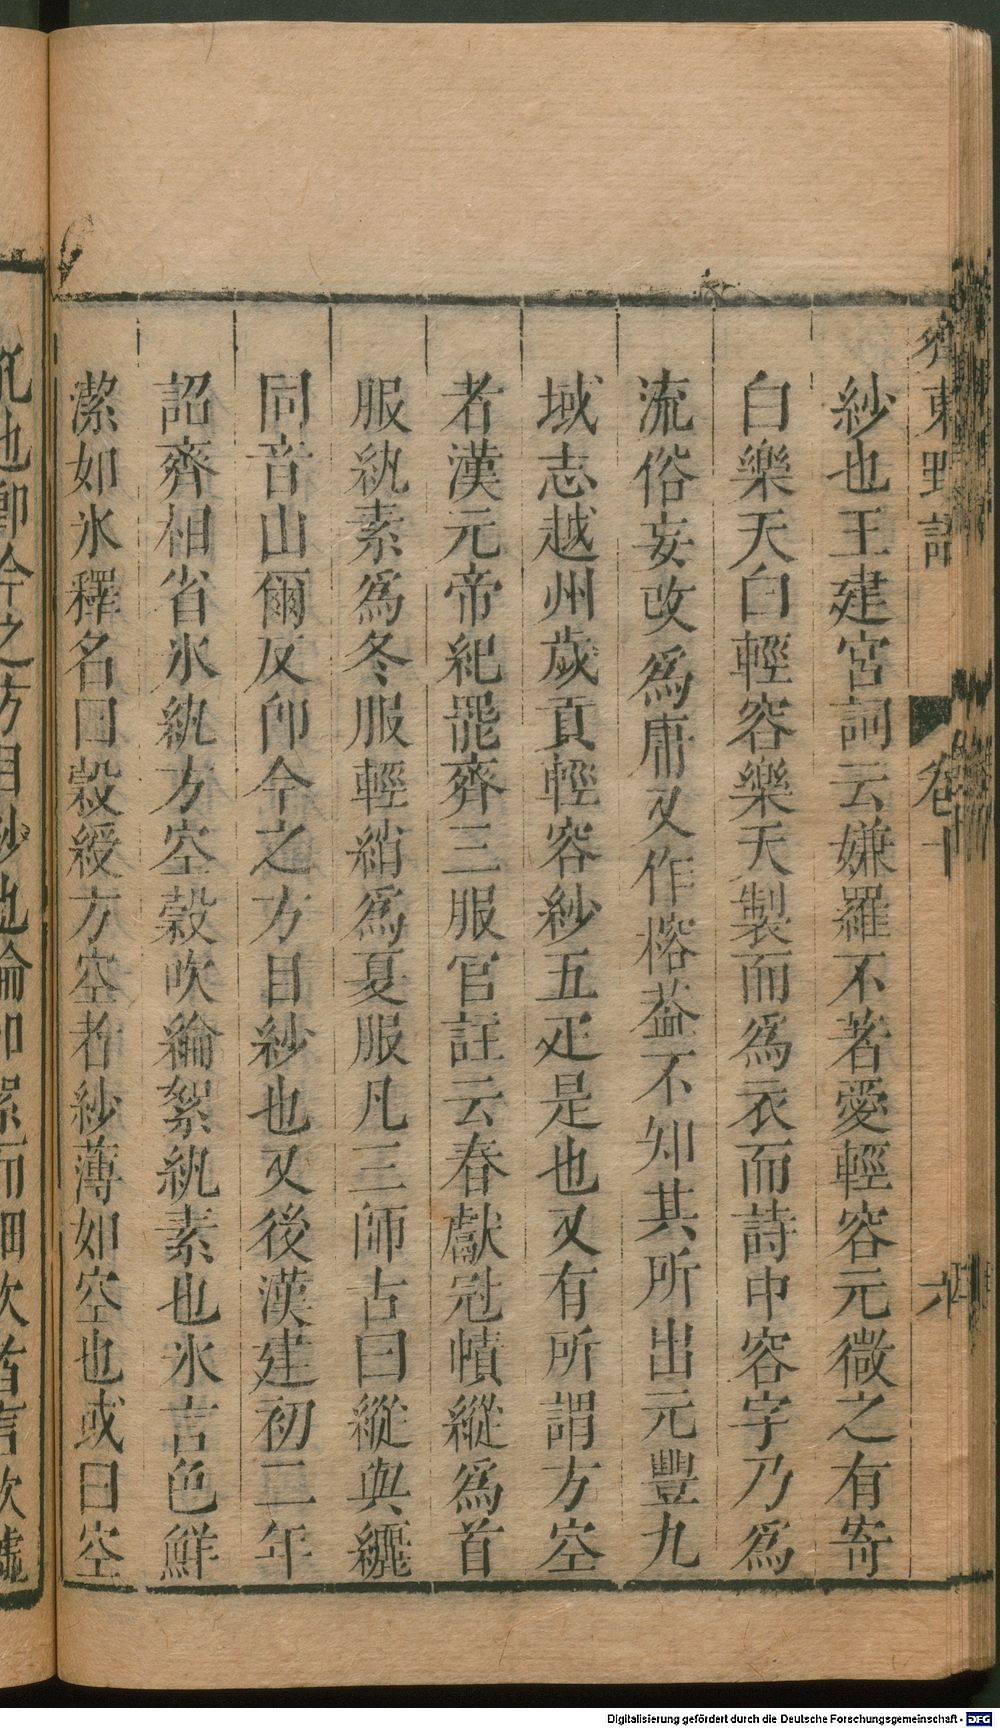 齊東野語 卷十 六
紗也王建宮詞云嫌羅不著愛輕容元微之有寄
白樂天白輕容樂天製而為衣而詩中容字乃為
流俗妄改為庸又作榕葢不知其所出元豐九
域志越州歲貢輕容紗五疋是也又有所謂方空
者漢元帝紀罷齊三服官註云春獻冠幘縰為首
服紈素為冬服輕綃為夏服凡三師古曰縰與纚
同音山爾反卽今之方目紗也又後漢建初二年
詔齊相省氷紈方空縠吹綸絮紈素也氷言色鮮
潔如氷釋名曰縠綬方空者紗薄如空也或曰空
孔也卽今之方目紗也綸如絮而細吹者言吹噓
Digitalisierung gefördert durch die Deutsche Forschungsgemeinschaft - DFG